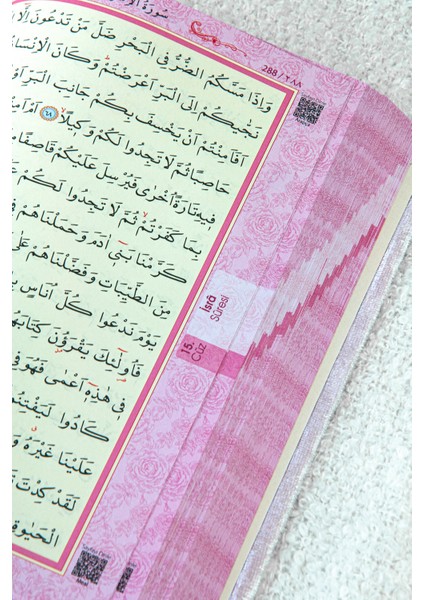 سُورَةُ الْاِ
288 / ٢٨٨
وَاِذَا مَسَّكُمُ الضُّرُّ فِي الْبَحْرِ ضَلَّ مَنْ تَدْعُونَ اِلَّٓا
نَجّٰيكُمْ اِلَى الْبَرِّ اَعْرَضْتُمْۜ وَكَانَ الْاِنْسَا
اَفَاَمِنْتُمْ اَنْ يَخْسِفَ بِكُمْ جَانِبَ الْبَرِّ اَوْ
حَاصِبًا ثُمَّ لَا تَجِدُوا لَكُمْ وَكٖيلًاۙ ﴿٦٨﴾ اَمْ اَمِنْ
فٖيهِ تَارَةً اُخْرٰى فَيُرْسِلَ عَلَيْكُمْ قَاصِفًا
بِمَا كَفَرْتُمْۙ ثُمَّ لَا تَجِدُوا لَكُمْ عَ
كَرَّمْنَا بَنٖٓي اٰدَمَ وَحَمَلْنَاهُمْ فِ
مِنَ الطَّيِّبَاتِ وَفَضَّلْنَاهُمْ عَلٰى
يَوْمَ نَدْعُوا كُلَّ اُنَاسٍ بِ
فَاُو۬لٰٓئِكَ يَقْرَؤُ۫نَ كِتَابَهُ
فٖي هٰذِهٖٓ اَعْمٰى فَهُوَ فِ
كَادُوا لَيَفْتِنُ
عَلَيْنَا غَيْرَهُۗ وَ
لَقَدْ كِدْتَ تَ
الْحَيٰوةِ
İsrâ
Sûresi
15.
Cüz
Meal